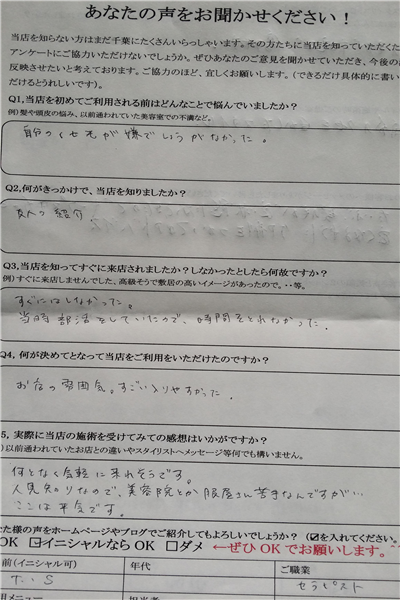 あなたの声をお聞かせください！
当店を知らない方はまだ千葉にたくさんいらっしゃいます。その方たちに当店を知っていただくた
アンケートにご協力いただけないでしょうか。ぜひあなたのご意見を聞かせていただき、今後の
反映させたいと考えております。ご協力のほど、宜しくお願いします。（できるだけ具体的に書い
だけるとうれしいです）。
Q1,当店を初めてご利用される前はどんなことで悩んでいましたか？
例）髪や頭皮の悩み、以前通われていた美容室での不満など。
自分のくせ毛が嫌でしょうがなかった。
Q2,何がきっかけで、当店を知りましたか？
友人の紹介
Q3,当店を知ってすぐに来店されましたか？しなかったとしたら何故ですか？
例）すぐに来店しませんでした、高級そうで敷居の高いイメージがあったので。・・等。
すぐにはしなかった。
当時部活をしていたので、時間をとれなかった。
Q4, 何が決めてとなって当店をご利用をいただけたのですか？
お店の雰囲気。すごい入りやすかった。
5, 実際に当店の施術を受けてみての感想はいかがですか？
）以前通われていたお店との違いやスタイリストへメッセージ等何でも構いません。
何となく気軽に来れそうです。
人見知りなので、美容院とか服屋さん苦手なんですが…
ここは平気です。
な様の声をホームページやブログでご紹介してもよろしいでしょうか？（☑を入れてください。
OK ☑イニシャルなら OK □ダメ ←ぜひ OK でお願いします。^^
前（イニシャル可） 年代 ご職業
S セラピスト
用メニュー 担当者